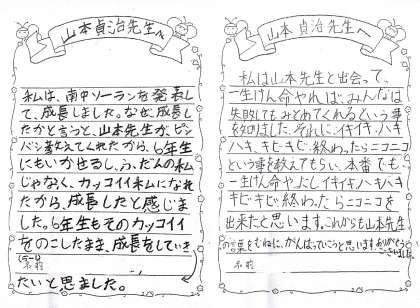 山本貞治先生へ
私は、南中ソーランを発表し
て、成長しました。なぜ、成長し
たかと言うと、山本先生が、ビシ
バシ教えてくれたから、6年生
にもいかせるし、ふだんの私
じゃなく、カッコイイ私になれ
たから、成長したと感じま
した。6年生もそのカッコイイ
をのこしたまま、成長をしていき
(5-2)
名前
たいと思ました。
山本貞治先生へ
私は山本先生と出会って、
一生けん命やれば、みんなは
失敗してもみとめてくれるという事
を知りました。それに、イキイキ、ハキ
ハキ、キビキビ、終わったらニコニコ
という事を教えてもらい、本番でも
一生けん命やったし、イキイキ、ハキハキ
キビキビ、終わったらニコニコを
出来たと思います。これからも山本先生
の言葉をむねに、がんばっていこうと思います。ありがとう
ございました。
名前